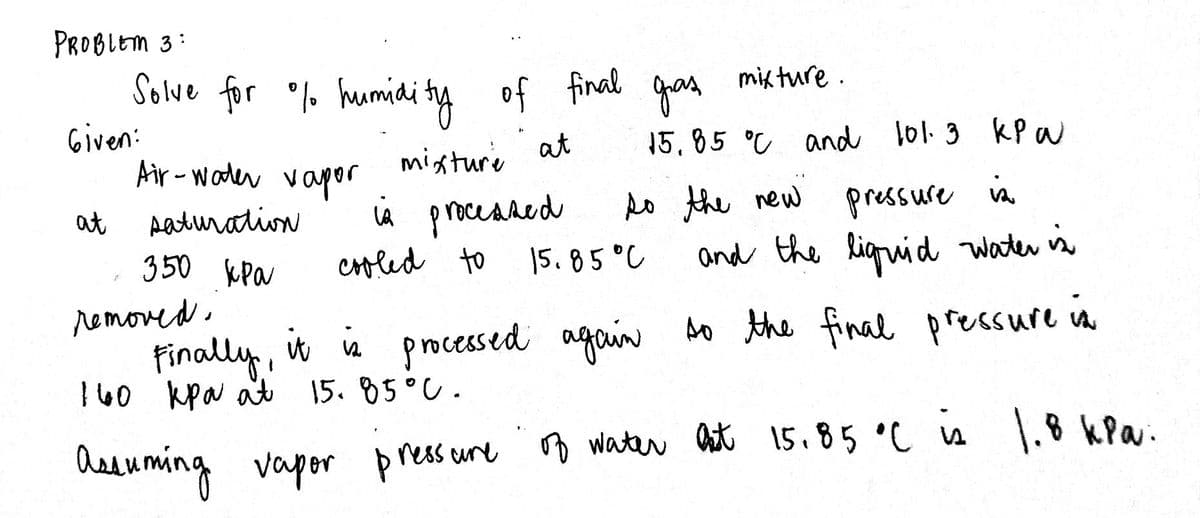 PROBLEM 3:
Solve for % humidity of final gas mixture.
Given:
Air-water vapor mixture at 15.85 °C and 101.3 kPa
at saturation is processed so the new pressure is
350 kPa cooled to 15.85°C and the liquid water is
removed.
Finally, it is processed again so the final pressure is
160 kpa at 15.85°C.
Assuming vapor pressure of water at 15.85 °C is 1.8 kPa.